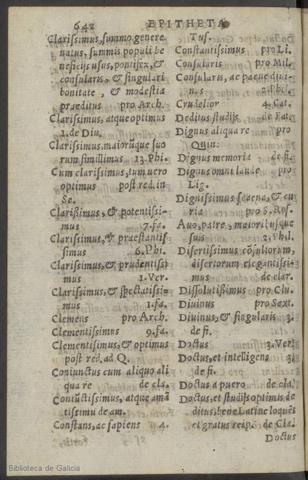 642
EPITHETA
Clarissimus, summo genere
natus, summis populi be
neficijs usus, pontifex, &
consularis, & singulari
bonitate, & modestia
præditus pro Arch.
Clarissimus, atque optimus
1. de Diu.
Clarissimus, maiorũque suo
rum simillimus 13. Phi.
Cum clarissimus, tum uero
optimus post red. in
Se.
Clarissimus, & potentissi-
mus 7. fa.
Clarissimus, & præstantis
simus 6. Phi.
Clarissimus, & prudentissi
mus 1. Ver.
Clarissimus, & spectatissi-
mus 1. fa.
Clemens pro Arch.
Clementissimus 9. fa.
Clementissimus, & optimus
post red. ad Q.
Coniunctus cum aliquo ali
qua re de cla.
Coniũctissimus, atque amã
tissimu de am.
Constans, ac sapiens 4.
Tus.
Constantissimus pro Li.
Consularis pro Mil.
Consularis, ac pæne diui-
nus 2. Phi.
Crudelior 4. Cat.
Deditus studijs de Fat.
Dignus aliqua re pro
Quin.
Dignus memoria de fi.
Dignus omni laude pro
Lig.
Dignissimus scæna, & cu
ria pro S. Ros.
Auo, patre, maioribusque
suis Phil.
Disertissimus cõsulorum,
disertorum elegantissi-
mus de clar.
Dissolutissimus pro Clu.
Diuinus pro Sext.
Diuinus, & singularis 3.
de fi.
Doctus 3. Ver.
Doctus, et intelligens 3.
de fi.
Doctus a puero de cla.
Doctus, et studijs optimis de
ditus, bene Latine loquẽs
et gratus resp. de Cla.
Doctus
Biblioteca de Galicia